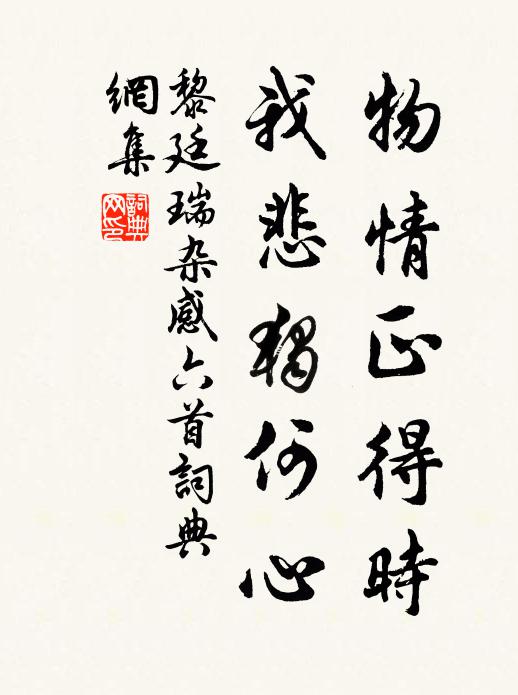 物情正得時
我悲獨何心
黎廷瑞杂感六首詞典
網集
詞典
网印